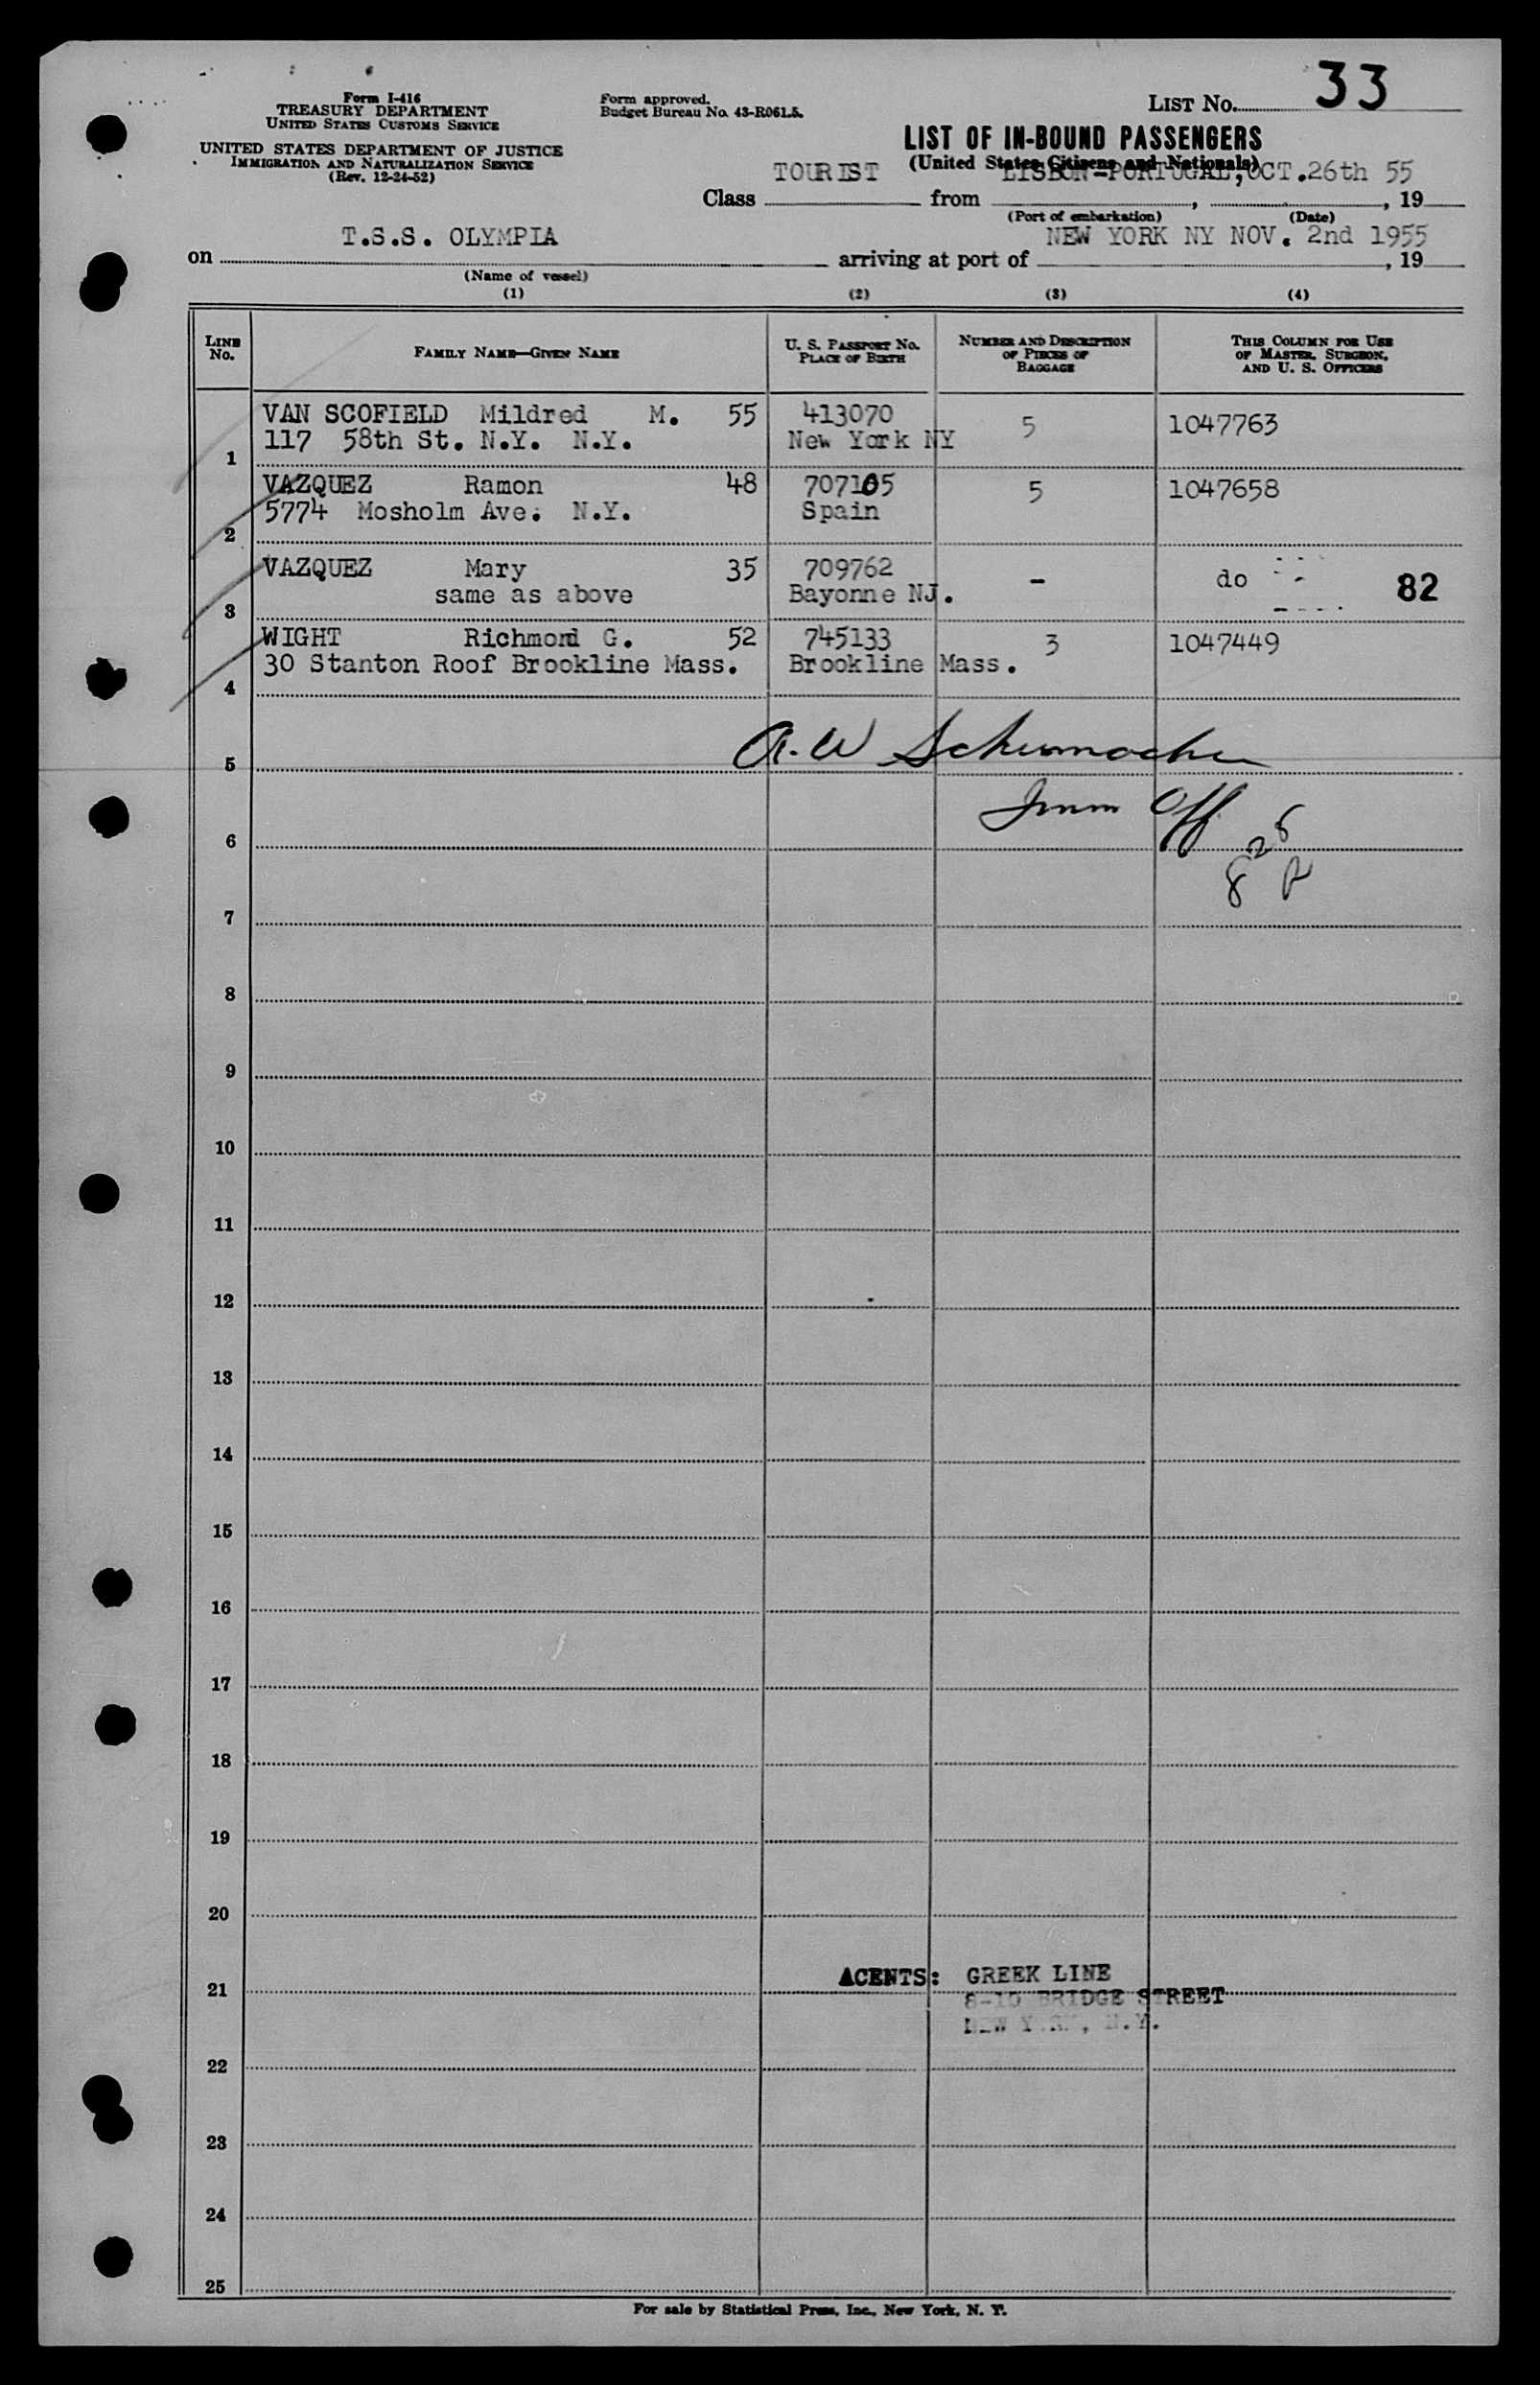 Form I-416
TREASURY DEPARTMENT
UNITED STATES CUSTOMS SERVICE
UNITED STATES DEPARTMENT OF JUSTICE
IMMIGRATION AND NATURALIZATION SERVICE
(Rev. 12-24-52)
Form approved.
Budget Bureau No. 43-R061.5.
LIST No. 33
LIST OF IN-BOUND PASSENGERS
(United States Citizens and Nationals)
Class TOURIST from LISBON-PORTUGAL, OCT.26th 55, 19
(Port of embarkation) (Date)
on T.S.S. OLYMPIA arriving at port of NEW YORK NY NOV. 2nd 1955, 19
(Name of vessel)
(1) (2) (3) (4)
LINE No. FAMILY NAME—GIVEN NAME U. S. PASSPORT No. PLACE OF BIRTH NUMBER AND DESCRIPTION OF PIECES OF BAGGAGE THIS COLUMN FOR USE OF MASTER, SURGEON, AND U. S. OFFICERS
VAN SCOFIELD Mildred M. 55 413070 5 1047763
1 117 58th St. N.Y. N.Y. New York NY
VAZQUEZ Ramon 48 707105 5 1047658
2 5774 Mosholm Ave. N.Y. Spain
VAZQUEZ Mary 35 709762 - do 82
3 same as above Bayonne NJ.
WIGHT Richmond G. 52 745133 3 1047449
4 30 Stanton Roof Brookline Mass. Brookline Mass.
A. W Schumacher
5
Imm Off
6
828
R
7
8
9
10
11
12
13
14
15
16
17
18
19
20
ACENTS: GREEK LINE
21 8-10 BRIDGE STREET
NEW YORK, N.Y.
22
23
24
25
For sale by Statistical Press, Inc., New York, N. Y.